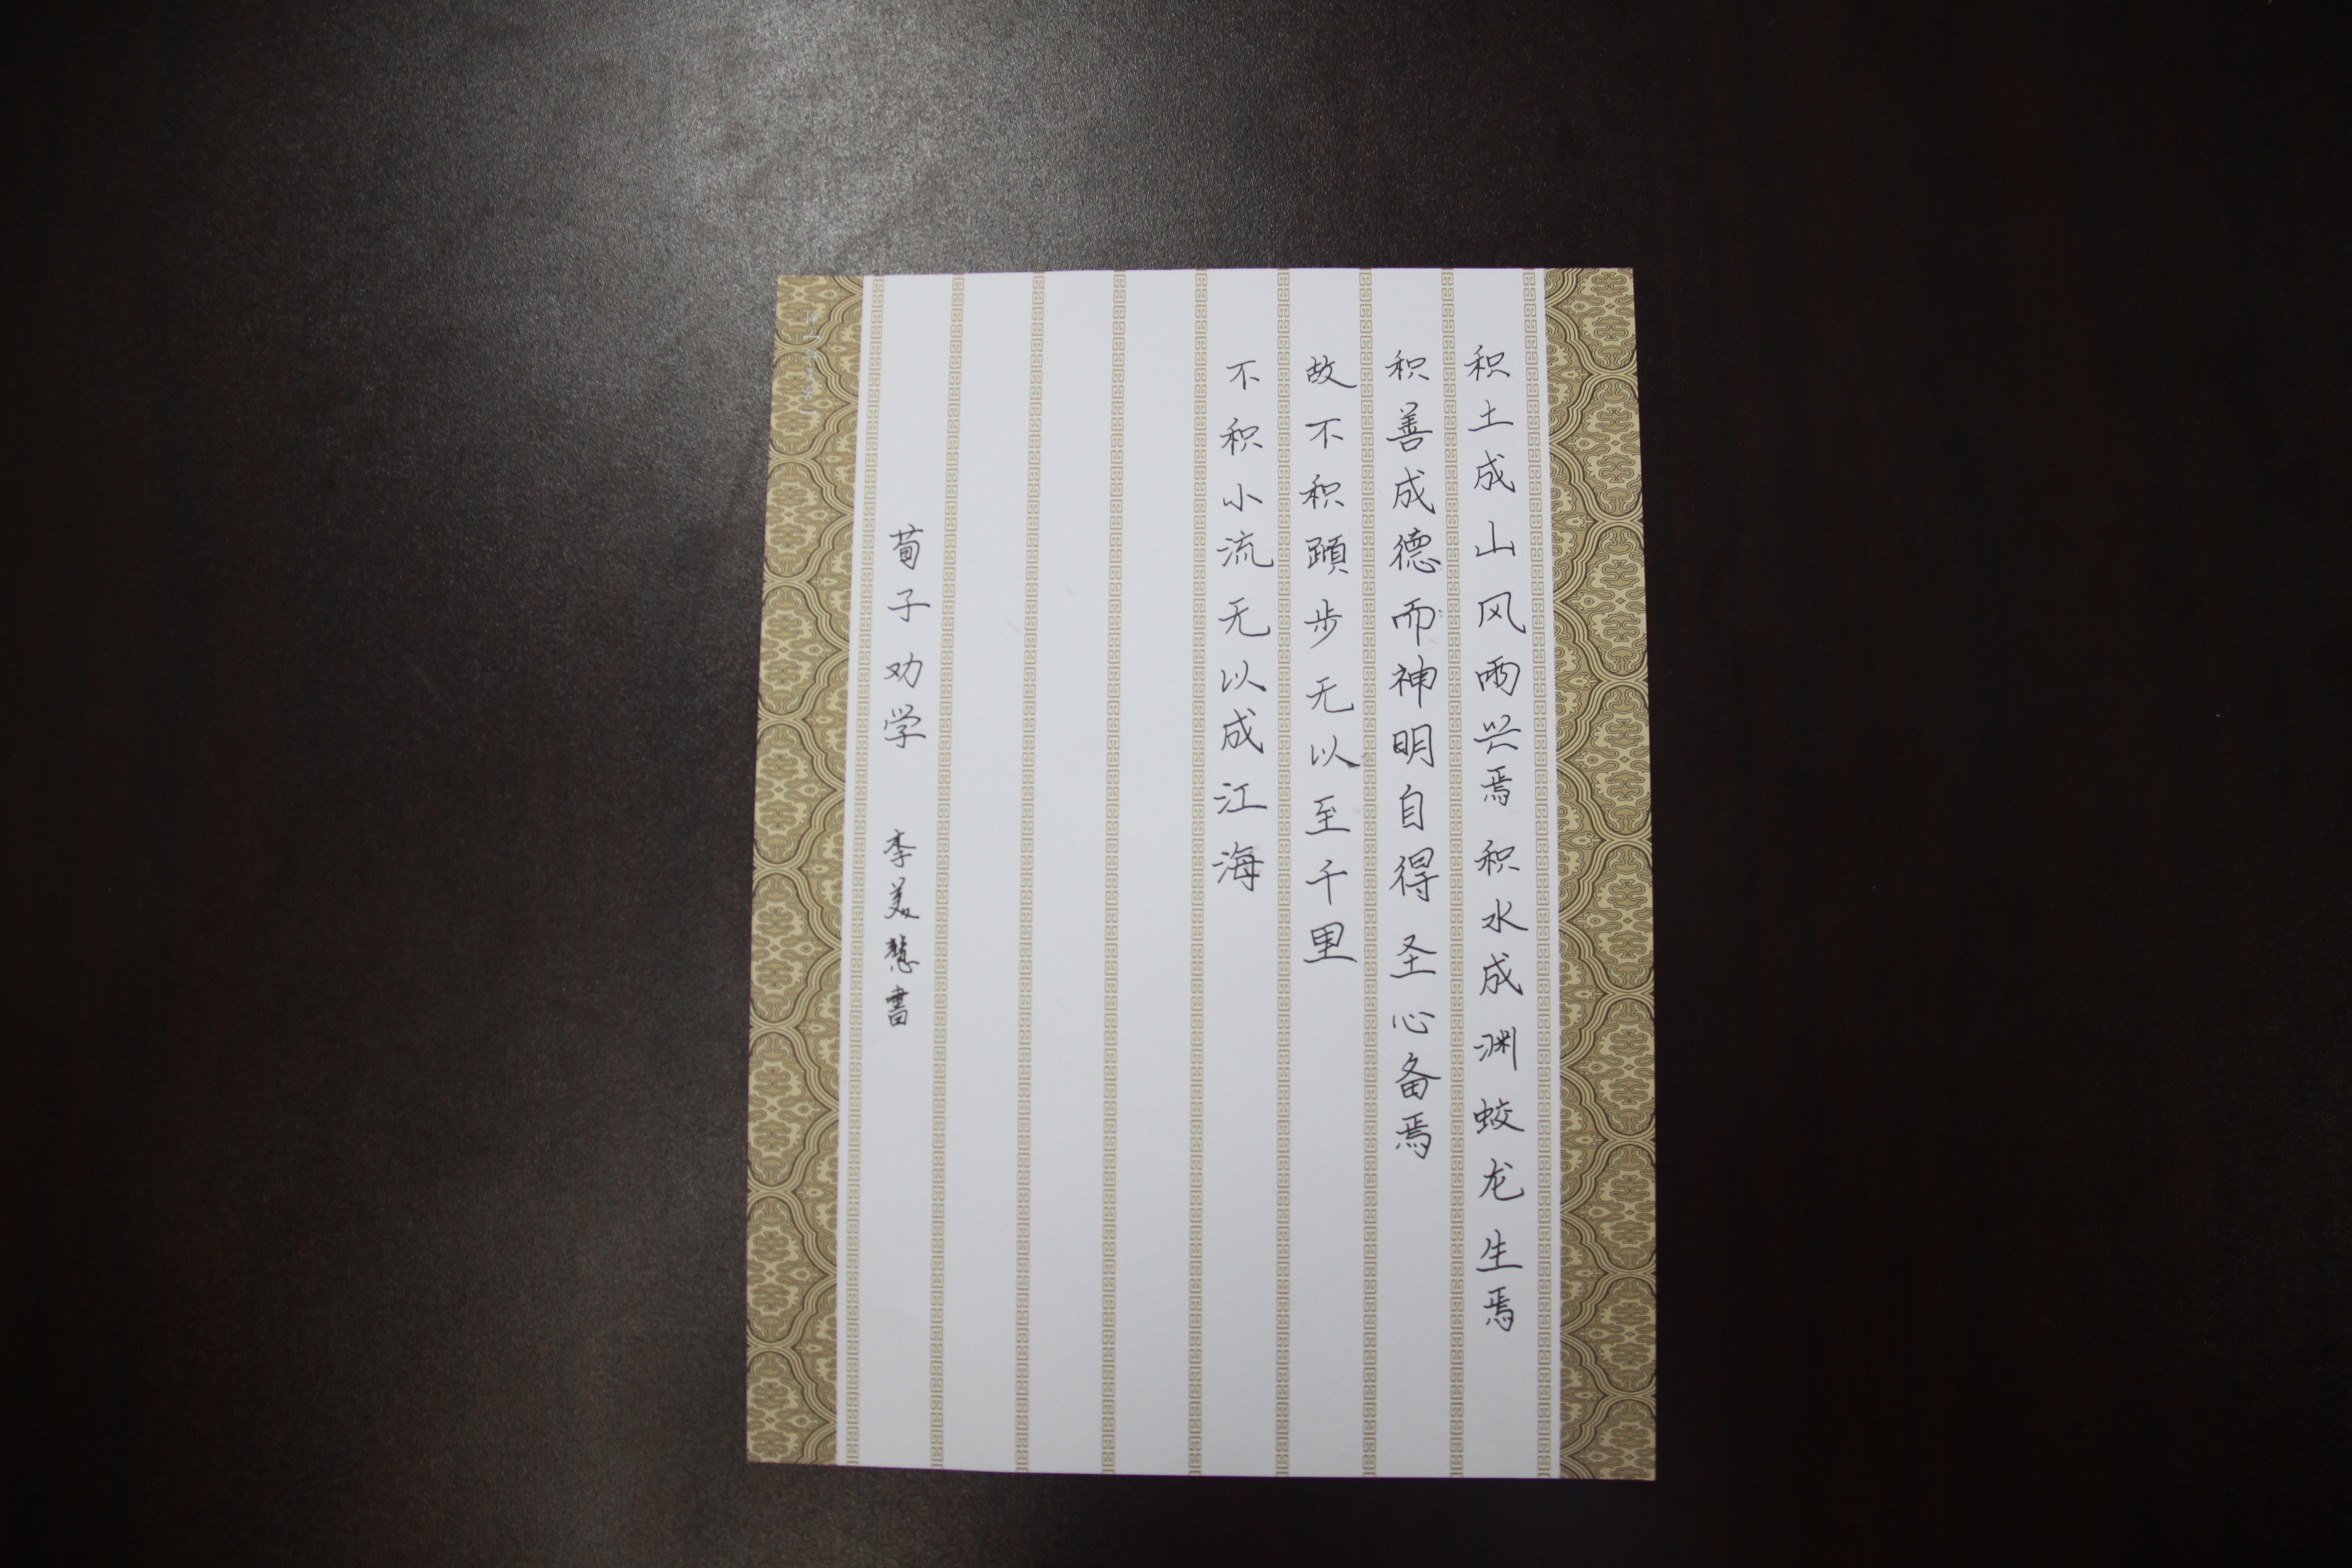 积土成山风雨兴焉积水成渊蛟龙生焉
积善成德而神明自得圣心备焉
故不积蹞步无以至千里
不积小流无以成江海
荀子劝学 李美慧書